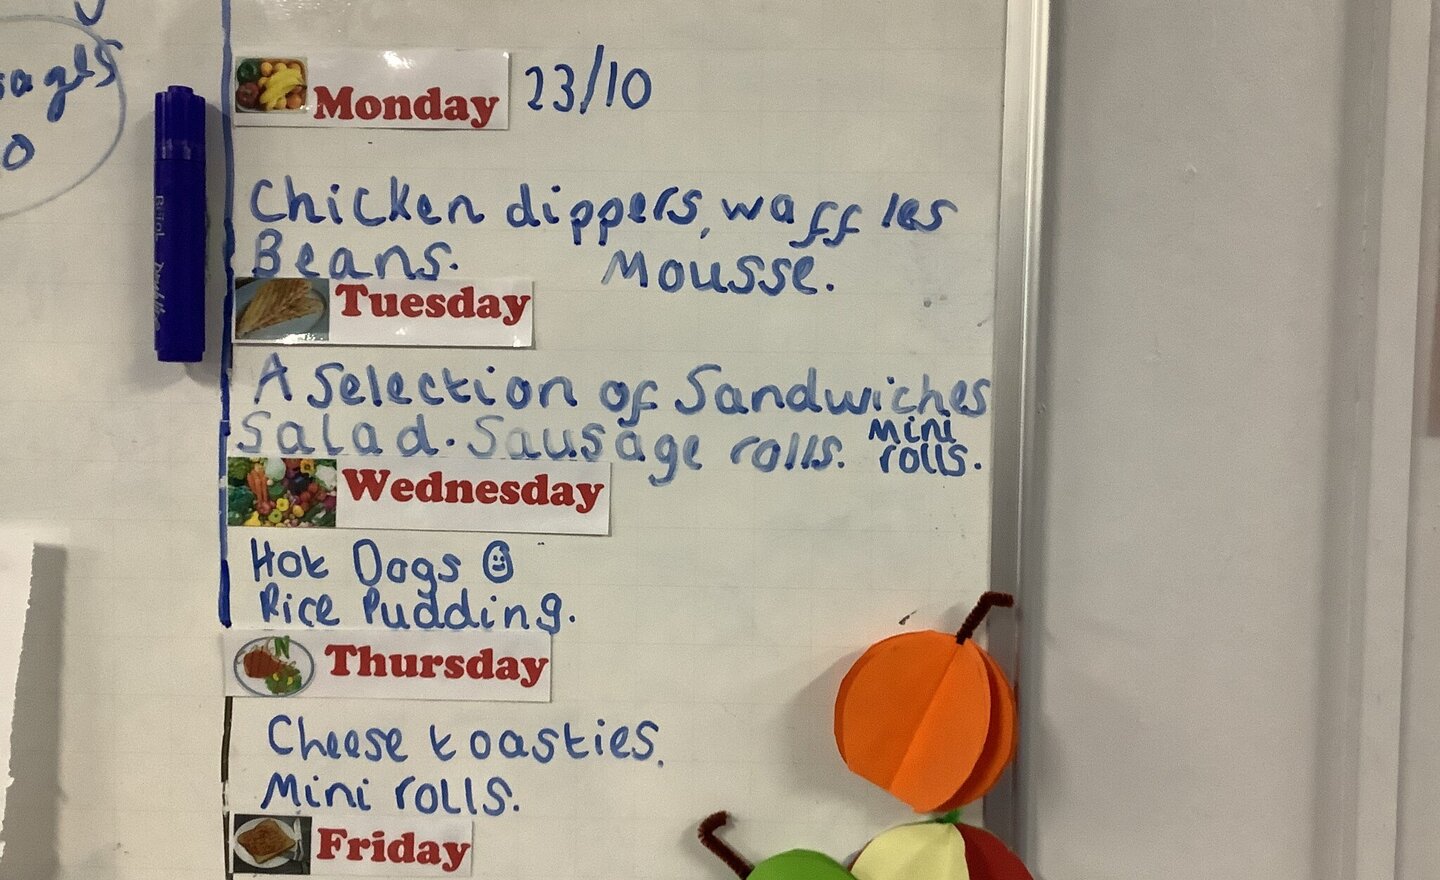 Monday 23/10
Chicken dippers, waffles
Beans. Mousse.
Tuesday
A selection of Sandwiches
Salad. Sausage rolls. Mini rolls.
Wednesday
Hot Dogs
Rice Pudding.
Thursday
Cheese toasties.
Mini rolls.
Friday